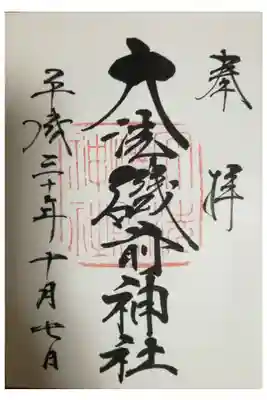 奉拝
大洗磯前神社
平成三十年十月七日